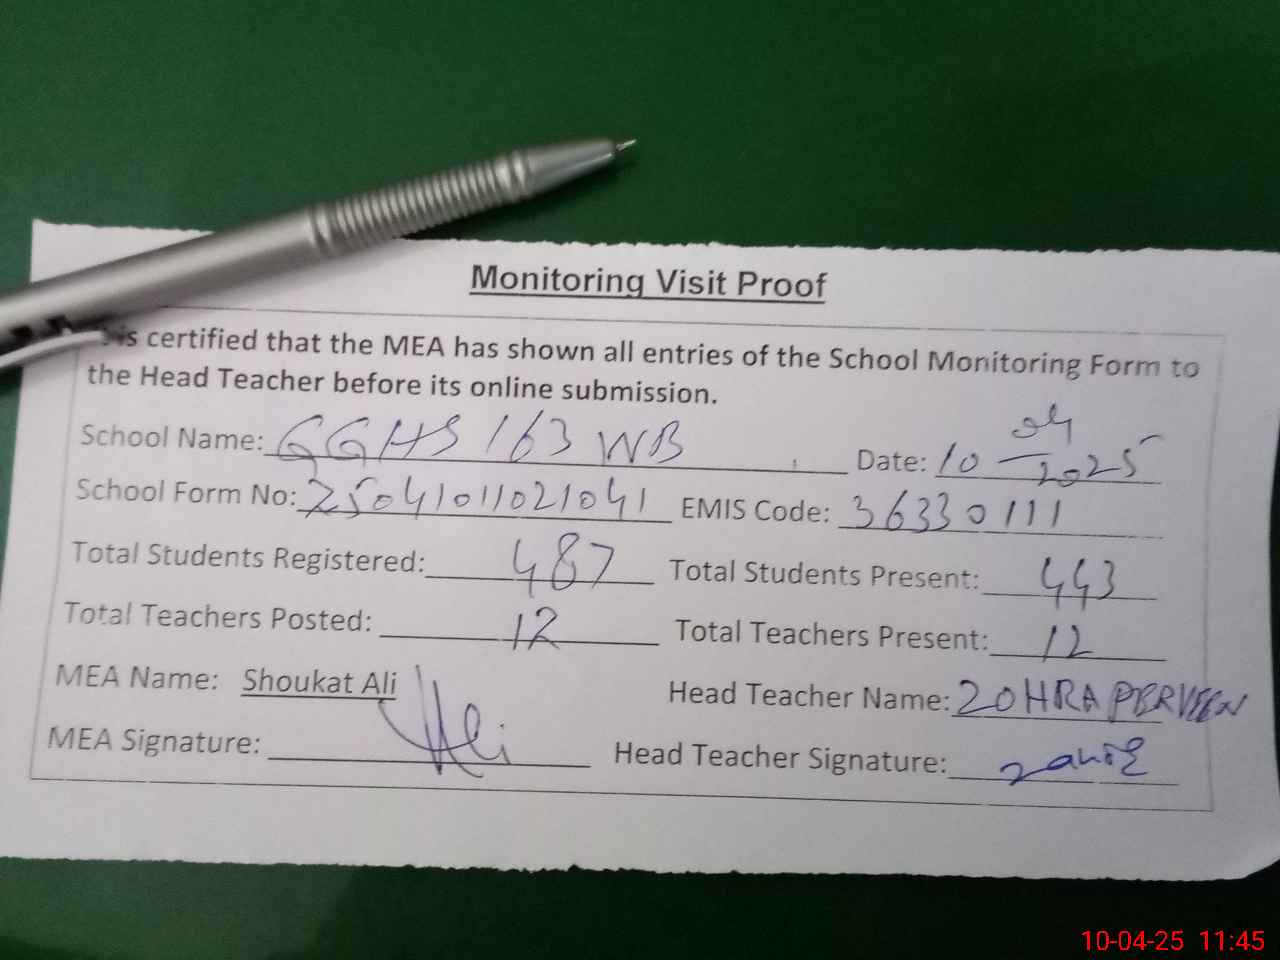 Monitoring Visit Proof
is certified that the MEA has shown all entries of the School Monitoring Form to
the Head Teacher before its online submission.
School Name: GGHS 163 WB Date: 10-04-2025
School Form No: 25041011021041 EMIS Code: 36330111
Total Students Registered: 487 Total Students Present: 443
Total Teachers Posted: 12 Total Teachers Present: 12
MEA Name: Shoukat Ali Head Teacher Name: ZOHRA PERVEEN
MEA Signature: Ali Head Teacher Signature:
10-04-25 11:45